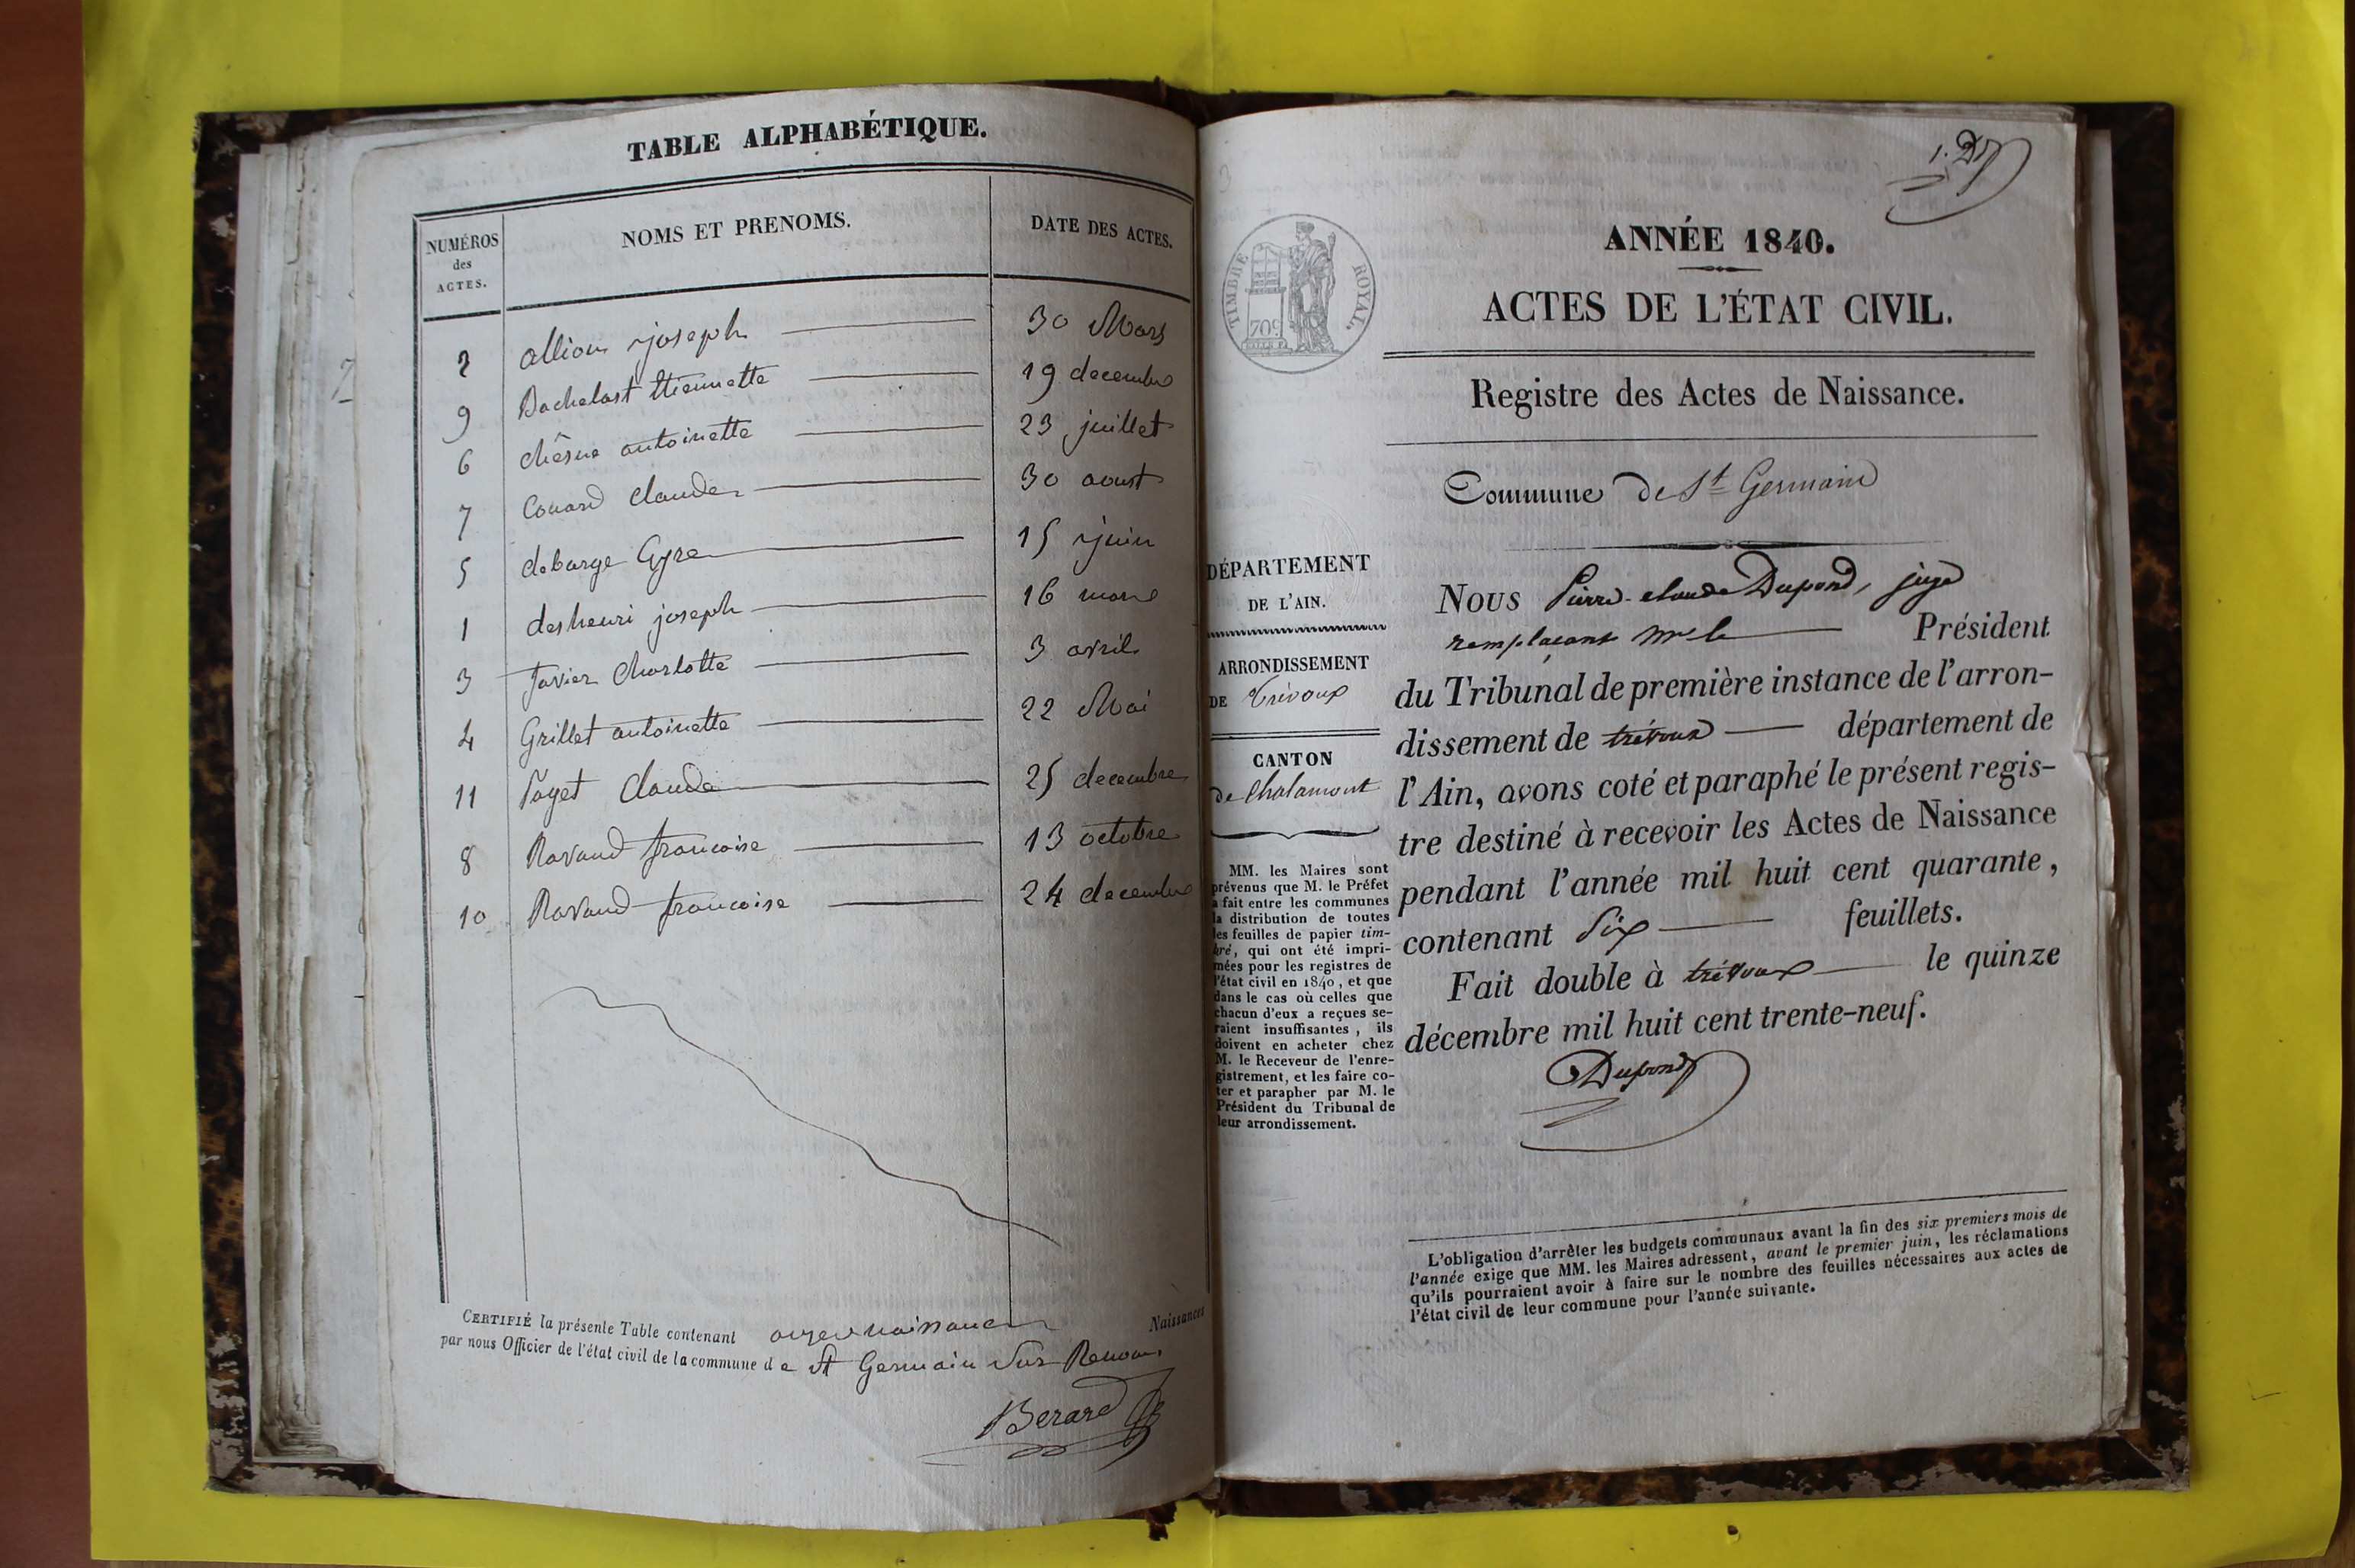 TABLE ALPHABÉTIQUE.
NUMÉROS des ACTES. NOMS ET PRENOMS. DATE DES ACTES.
2 allion joseph 30 Mars
9 Bachelast ttiennette 19 decembre
6 chêsne antoinette 23 juillet
7 Conard Claude 30 aoust
5 debarge Gyre 15 juin
1 deshenri joseph 16 mars
3 favier Charlotte 3 avril
4 Grillet antoinette 22 Mai
11 Paget Claude 25 decembre
8 Ravaud francoise 13 octobre
10 Ravaud francoise 24 decembre
CERTIFIÉ la présente Table contenant onze naissances Naissances
par nous Officier de l'état civil de la commune de St Germain Sur Renon.
Berard
1.
TIMBRE ROYAL.
70c
ANNÉE 1840.
ACTES DE L'ÉTAT CIVIL.
Registre des Actes de Naissance.
Commune de St Germain
DÉPARTEMENT
DE L'AIN.
ARRONDISSEMENT
DE Trévoux
CANTON
de Chalamont
MM. les Maires sont
prévenus que M. le Préfet
a fait entre les communes
la distribution de toutes
les feuilles de papier tim-
bré, qui ont été impri-
mées pour les registres de
l'état civil en 1840, et que
dans le cas où celles que
chacun d'eux a reçues se-
raient insuffisantes, ils
doivent en acheter chez
M. le Receveur de l'enre-
gistrement, et les faire co-
ter et parapher par M. le
Président du Tribunal de
leur arrondissement.
Nous Pierre-claude Dupond, juge
remplaçant Mr le Président
du Tribunal de première instance de l'arron-
dissement de trévoux département de
l'Ain, avons coté et paraphé le présent regis-
tre destiné à recevoir les Actes de Naissance
pendant l'année mil huit cent quarante,
contenant Six feuillets.
Fait double à trévoux le quinze
décembre mil huit cent trente-neuf.
Dupond
L'obligation d'arrêter les budgets communaux avant la fin des six premiers mois de
l'année exige que MM. les Maires adressent, avant le premier juin, les réclamations
qu'ils pourraient avoir à faire sur le nombre des feuilles nécessaires aux actes de
l'état civil de leur commune pour l'année suivante.